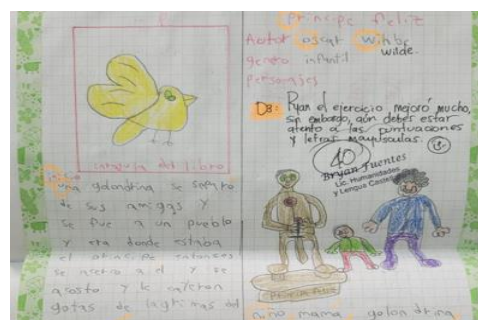 imagen del libro
Inicio
una golondrina se separo
de sus amigas y
se fue a un pueblo
y era donde estaba
el principe entonses
se acerco a el y se
acosto y le calleron
gotas de lagrimas del
Principe feliz
Autor oscar Wilbe
wilde.
genero infantil
Personajes
OB: Ryan el ejercicio mejoró mucho,
sin embargo, aún debes estar
atento a las puntuaciones
y letras mayúsculas.
40
Bryan Fuentes
Lic. Humanidades
y Lengua Castellana
niño mama golondrina